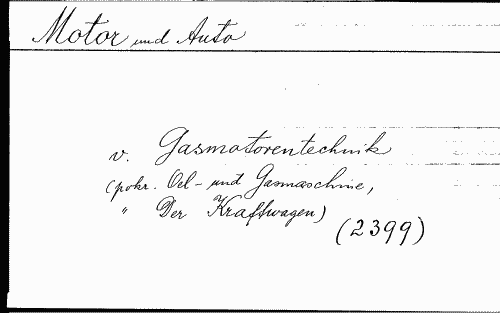 Motor und Auto
v. Gasmotorentechnik
(pokr. Oel- und Gasmaschine,
" Der Kraftwagen)
(2399)